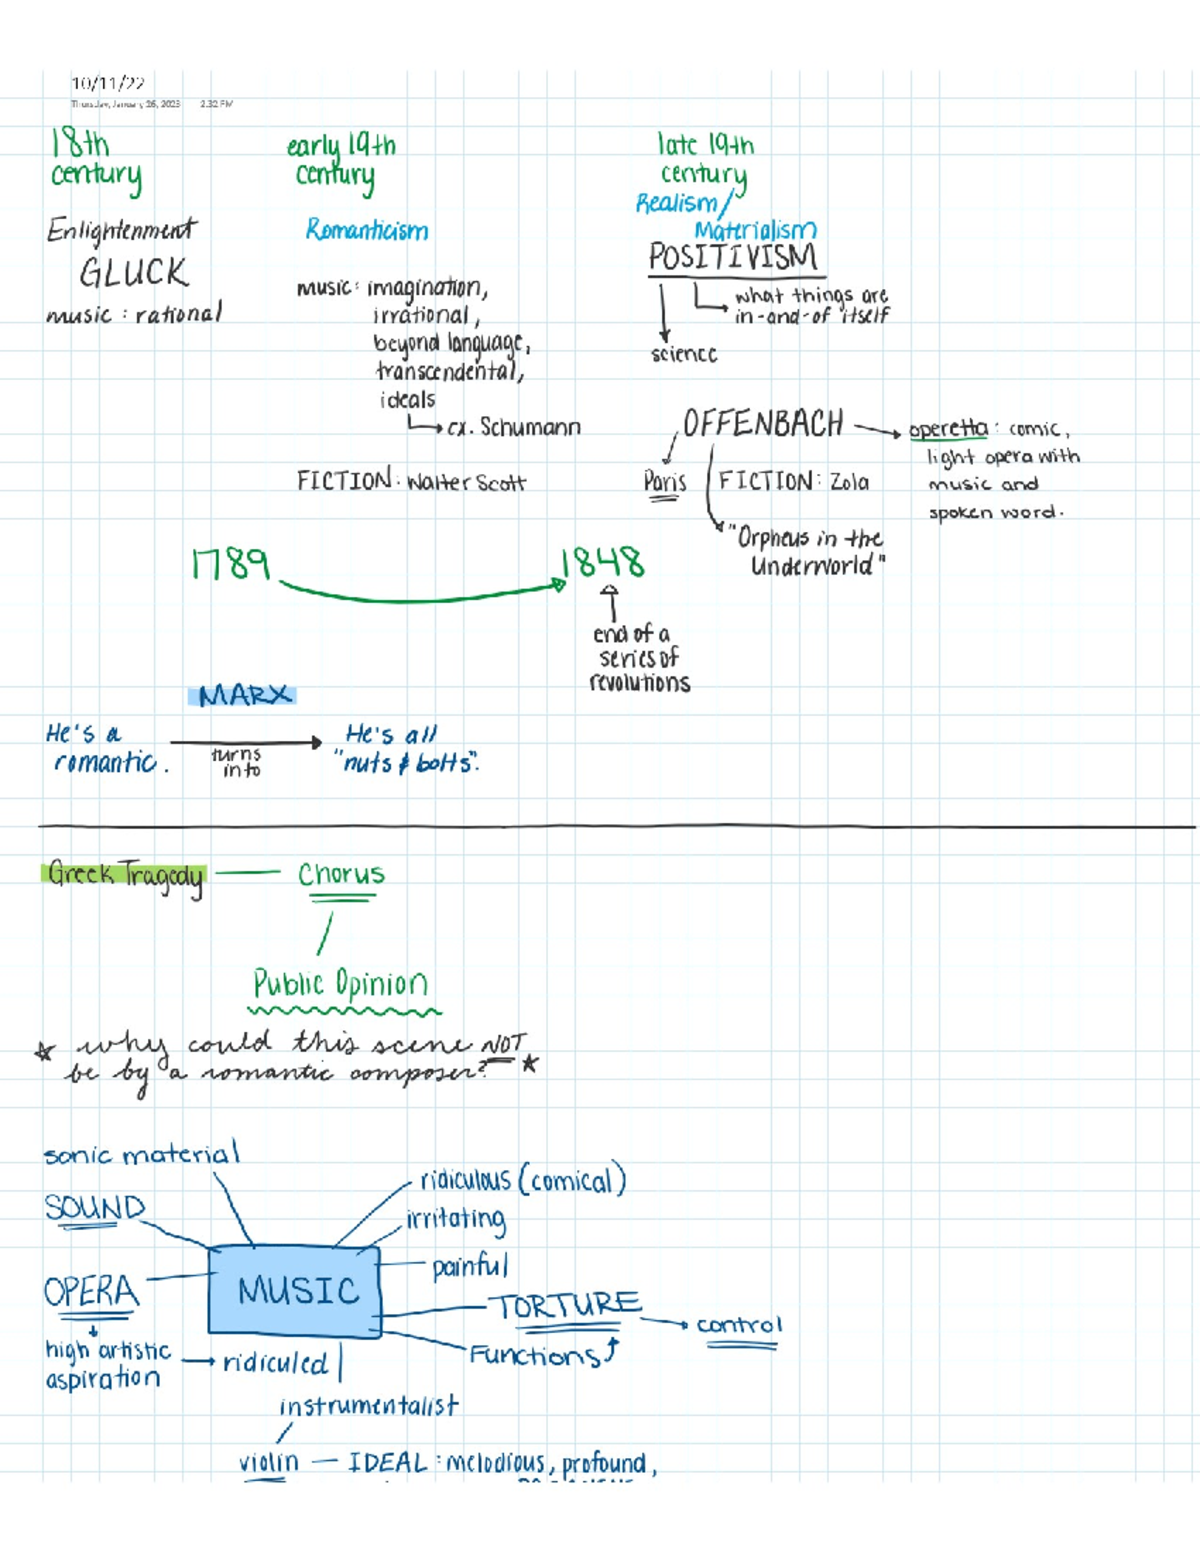 10/11/22
Thursday, January 26, 2023 2:32 PM
18th
century
Enlightenment
GLUCK
music : rational
early 19th
century
Romanticism
music: imagination,
irrational,
beyond language,
transcendental,
ideals
ex. Schumann
FICTION: Walter Scott
late 19th
century
Realism/
Materialism
POSITIVISM
what things are
in-and-of itself
science
OFFENBACH
operetta: comic,
light opera with
music and
spoken word.
Paris
FICTION: Zola
"Orpheus in the
Underworld"
1789
1848
end of a
series of
revolutions
MARX
He's a
romantic.
turns
into
He's all
"nuts & bolts".
Greek Tragedy
Chorus
Public Opinion
* why could this scene NOT
be by a romantic composer? *
sonic material
SOUND
OPERA
high artistic
aspiration
ridiculed
MUSIC
ridiculous (comical)
irritating
painful
TORTURE
control
Functions
instrumentalist
violin — IDEAL: melodious, profound,